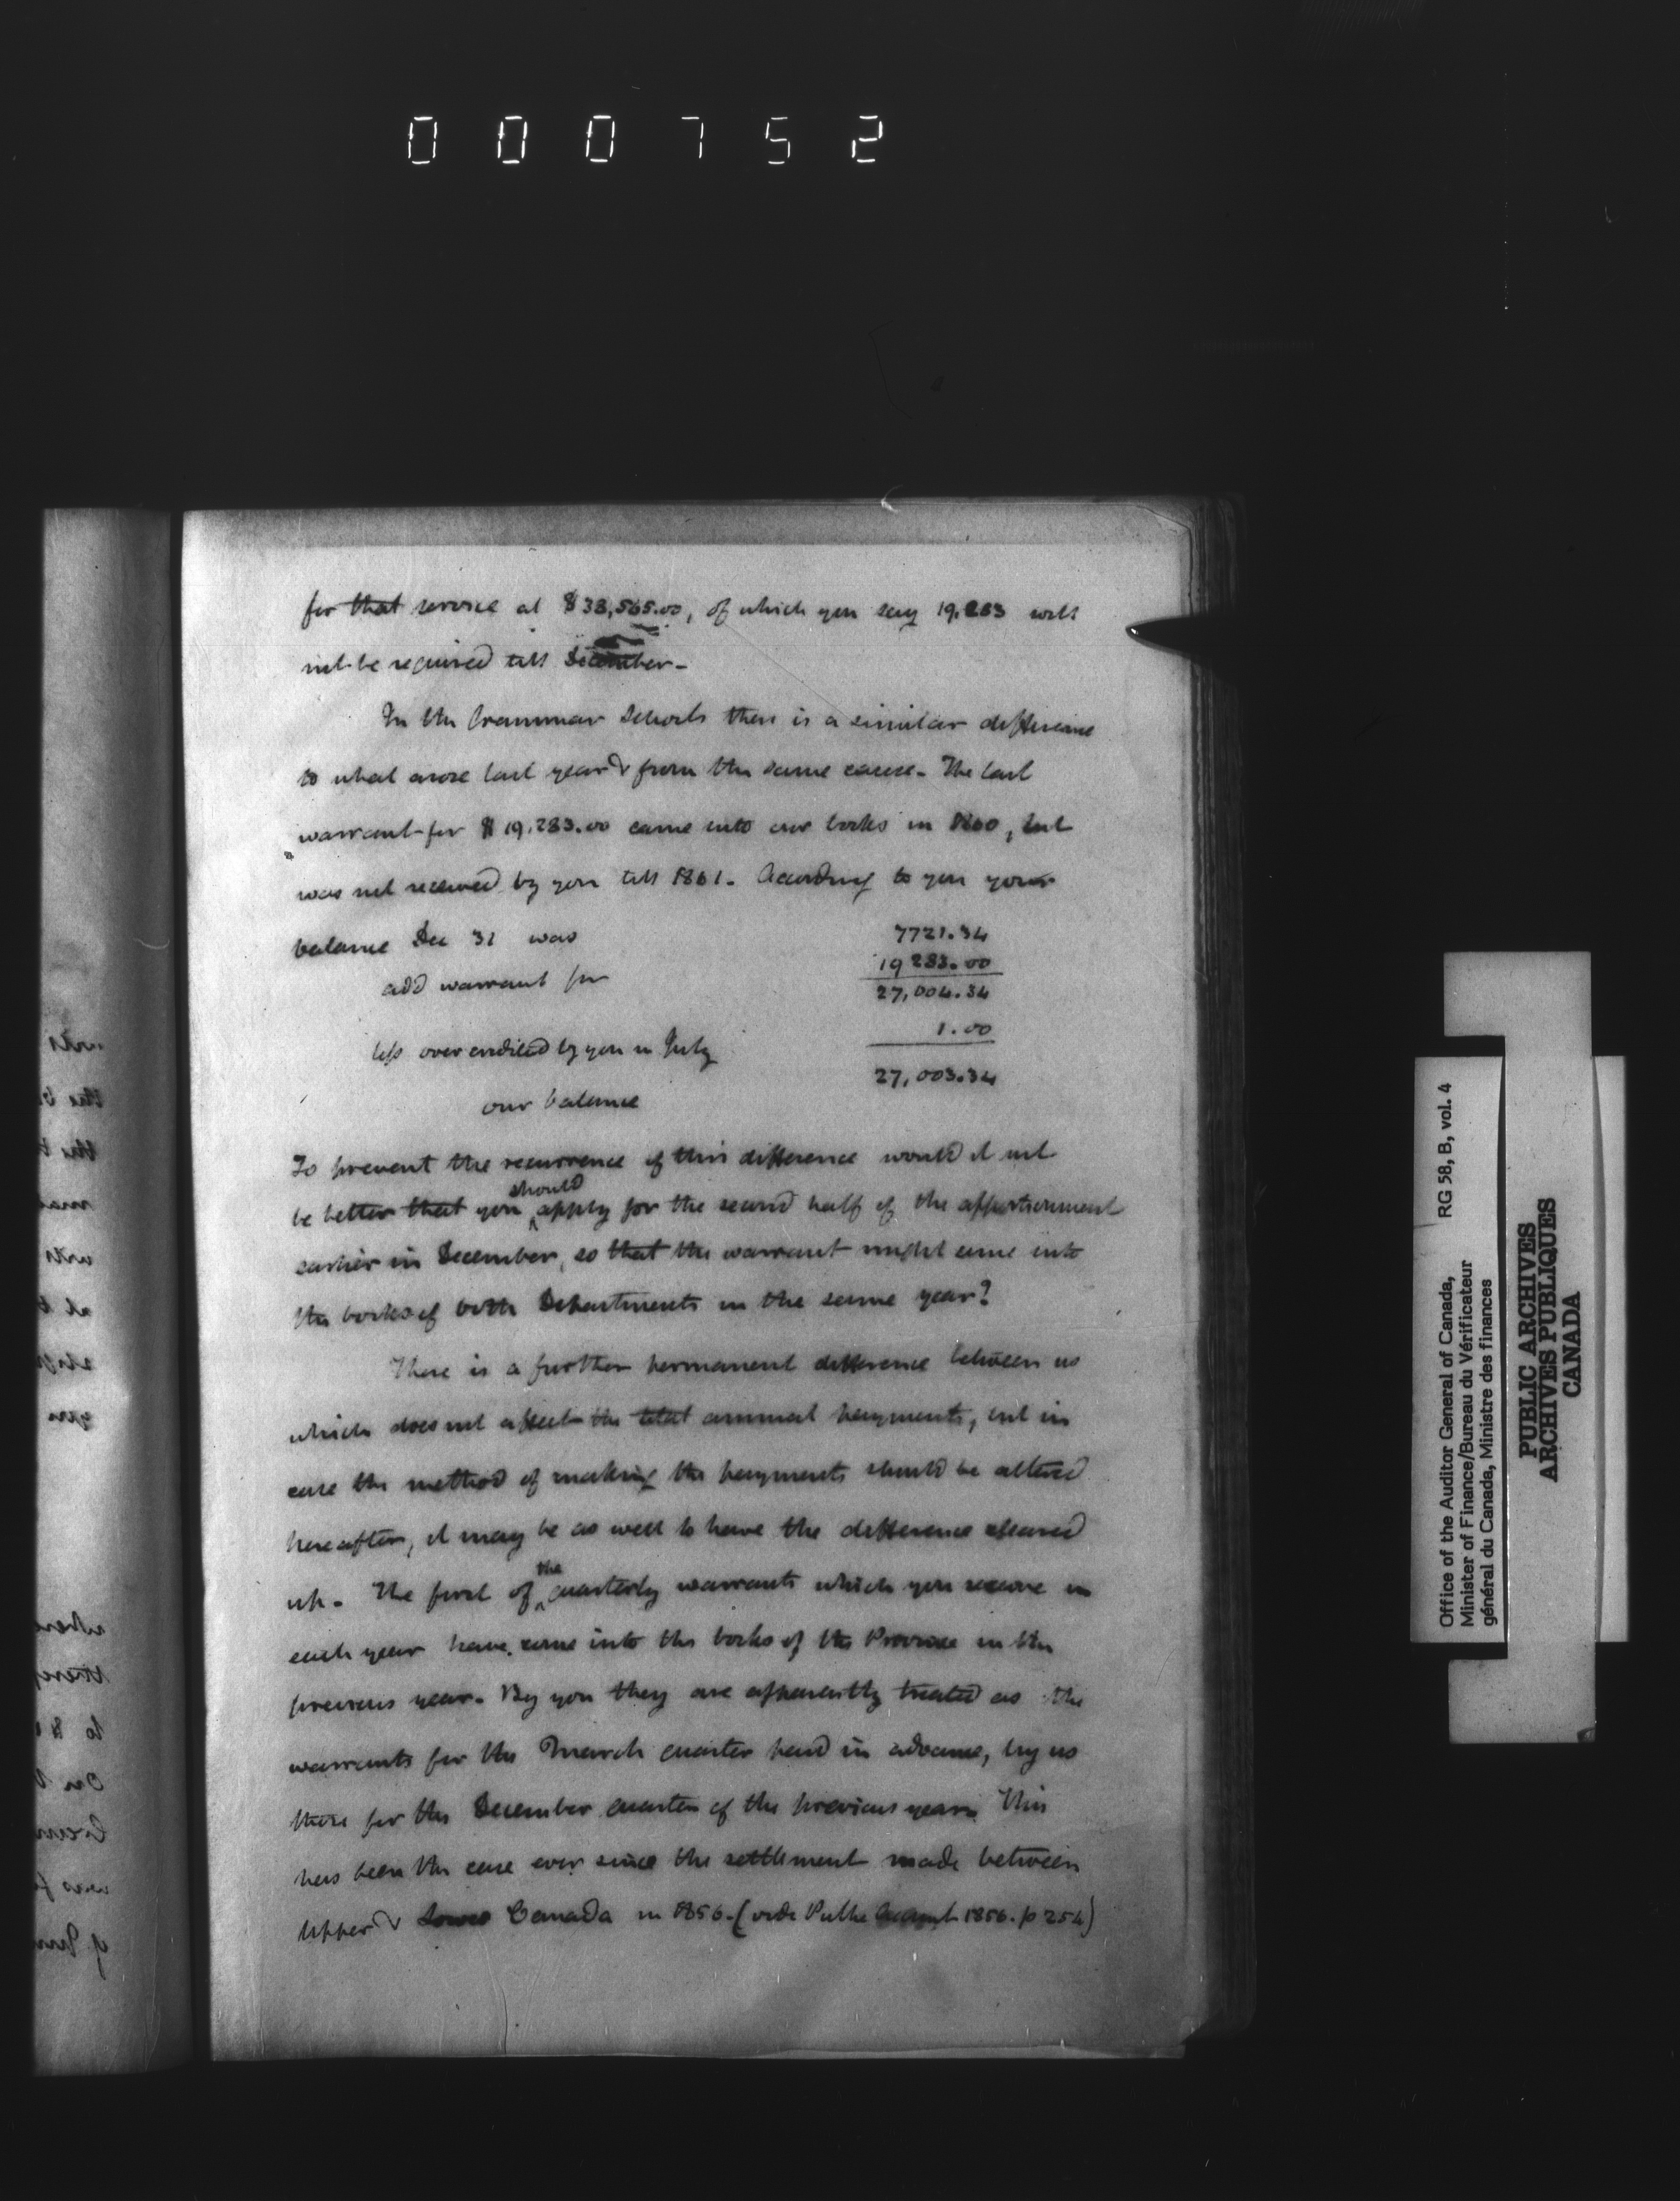 000752
for that service at $38,565.00, of which you say 19.283 will
not be required till December-
In the Grammar Schools there is a similar difference
to what arose last year & from the same cause- The last
warrant for $19.283.00 came into our books in 1860, but
was not received by you till 1861. According to you your
balance Dec 31 was 7721.34
add warrant for 19283.00
27,004.34
less over credited by you in July 1.00
our balance 27,003.34
To prevent the recurrence of this difference would it not
be better that you should apply for the second half of the apportionment
earlier in December, so that the warrant might come into
the books of both Departments in the same year?
There is a further permanent difference between us
which does not affect the total annual payments, but in
case the method of making the payments should be altered
hereafter, it may be as well to have the difference cleared
up- The first of the quarterly warrants which you receive in
each year have come into the books of the Province in the
previous year- By you they are apparently treated as the
warrants for the March quarter paid in advance, by us
those for the December quarter of the previous year. This
has been the case ever since the settlement made between
Upper & Lower Canada in 1856. (vide Public Account 1856. p 254)
Office of the Auditor General of Canada, RG 58, B, vol. 4
Minister of Finance/Bureau du Vérificateur
général du Canada, Ministre des finances
PUBLIC ARCHIVES
ARCHIVES PUBLIQUES
CANADA